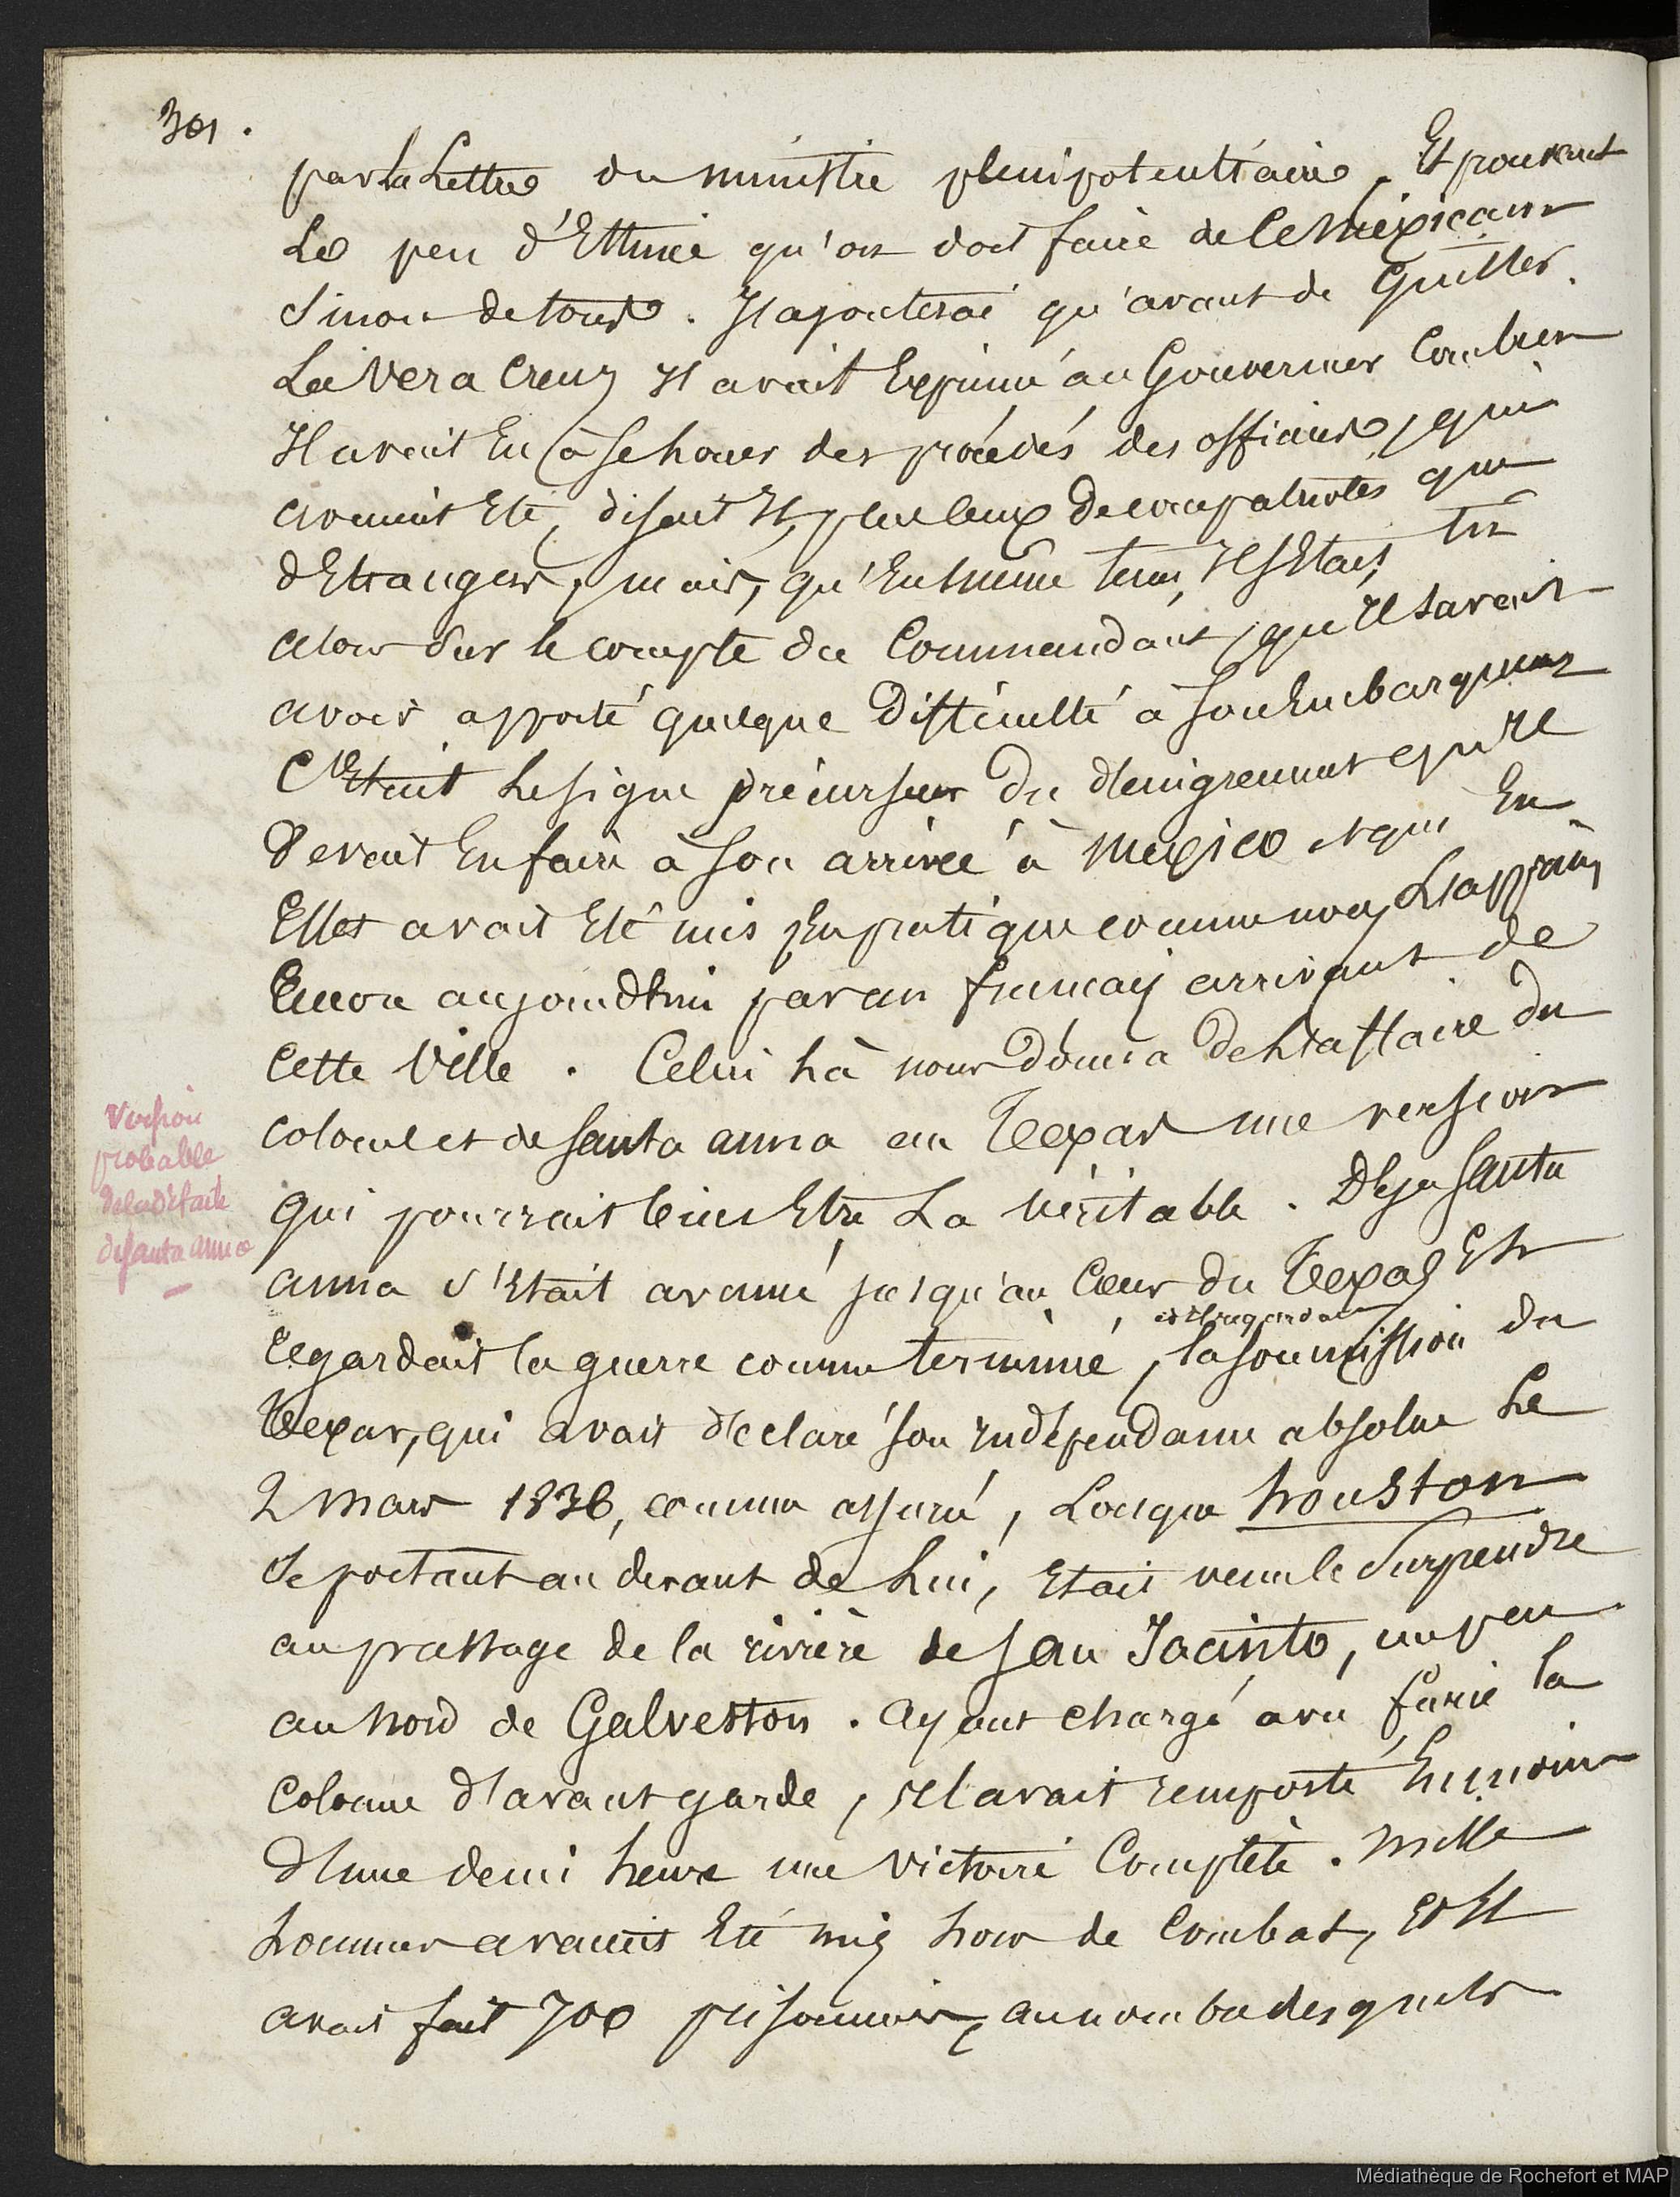 301.
par la Lettre du ministre plenipotentiaire. Et prouvent
Le peu d'Estime qu'on doit faire de ce Mexicain
Sinon de tous. J'ajouterai qu'avant de Quitter
La Vera Creuz Il avait Exprimé au Gouverneur Combien
Il avait Eu à se Louer des procédés des officiers, qui
avaient Eté, disait Il, plus Ceux De compatriotes que
d'Etrangers, mais, qu'En même tems, Il s'Etait tu
alors Sur le compte du Commandant, qu'Il savait
avoir apporté quelque Difficulté à Son Embarquement
C'Etait Le signe précurseur Du denigrement qu'Il
Devait En faire à son arrivée à Mexico et qui En
Effet avait Eté mis En pratique comme nous L'apprîmes
Encore aujourd'hui par un francais arrivant de
Cette Ville. Celui Là nous Donna De L'affaire Du
colonel et de Santa anna au Texas une version
Version
probable
de la Défaite
de Santa Anna
qui pourrait bien Etre La véritable. Deja Santa
anna s'Etait avancé jusqu'au Cœur du Texas Et
Regardait la guerre comme terminée, et Regardait la soumission du
Texas, qui avait déclaré son Indépendance absolue Le
2 Mars 1836, comme assuré, Lorsque houston
Se portant au devant de Lui, Etait venu le Surprendre
au passage de la rivière de San Jacinto, un peu
au Nord de Galveston. Ayant chargé avec furie la
Colonne d'avant garde, Il avait remporté En moins
d'Une demi heure une victoire Complète. Mille
hommes avaient Eté mis hors de Combat, Et Il
avait fait 700 prisonniers, au nombre desquels
Médiathèque de Rochefort et MAP